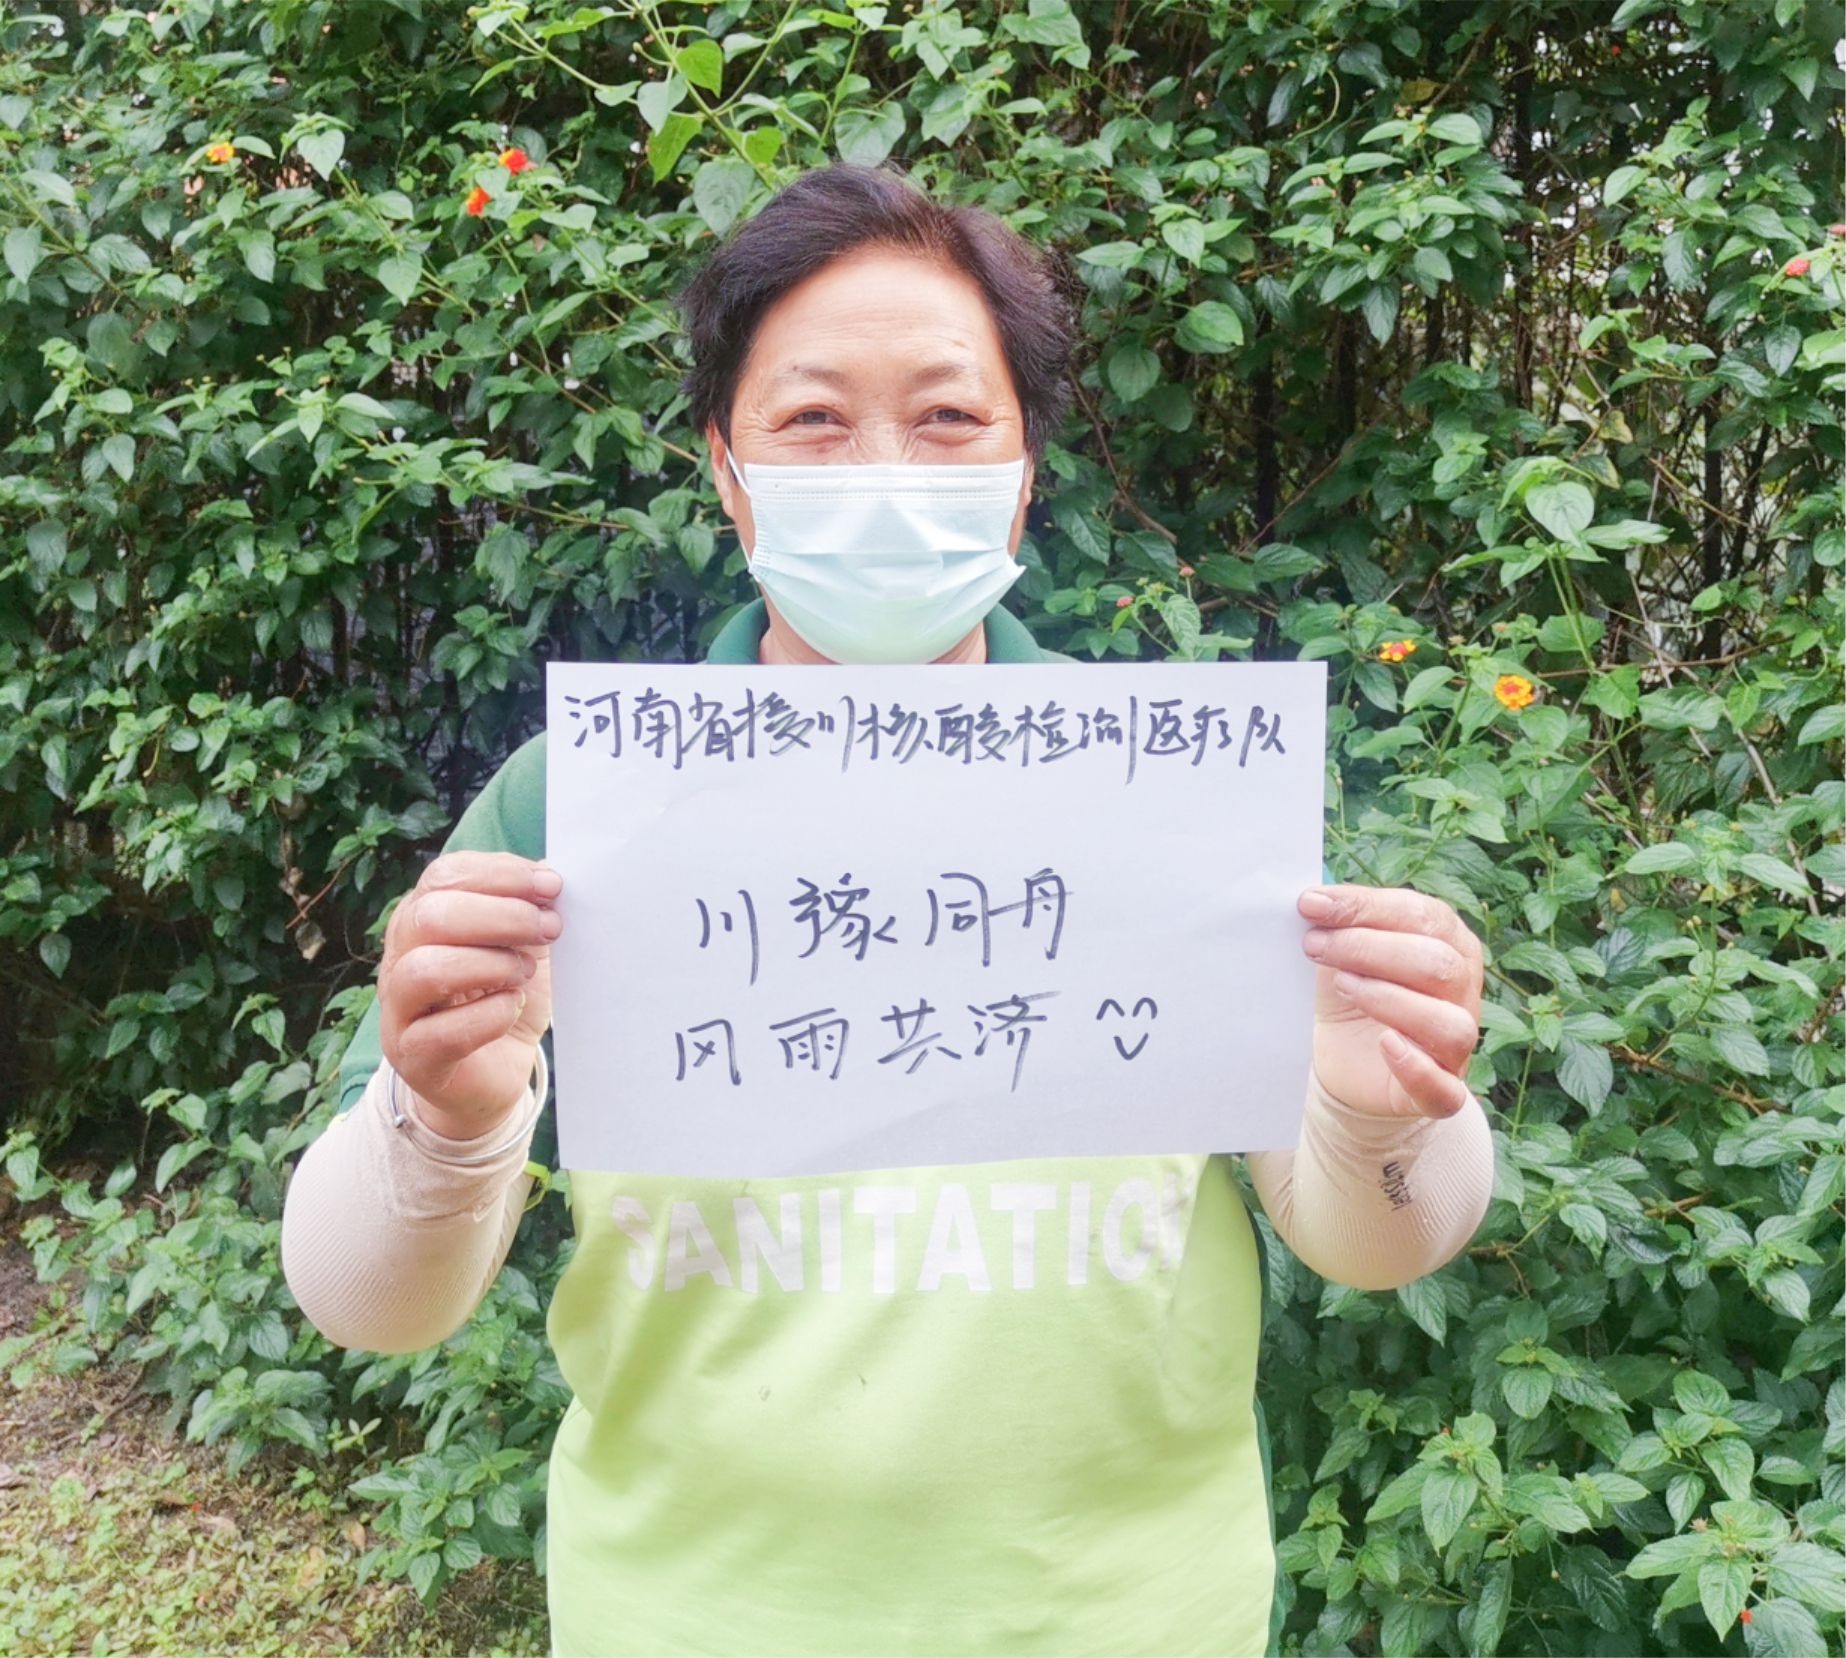 河南省援川核酸检测医疗队
川豫同舟
风雨共济
SANITATIO